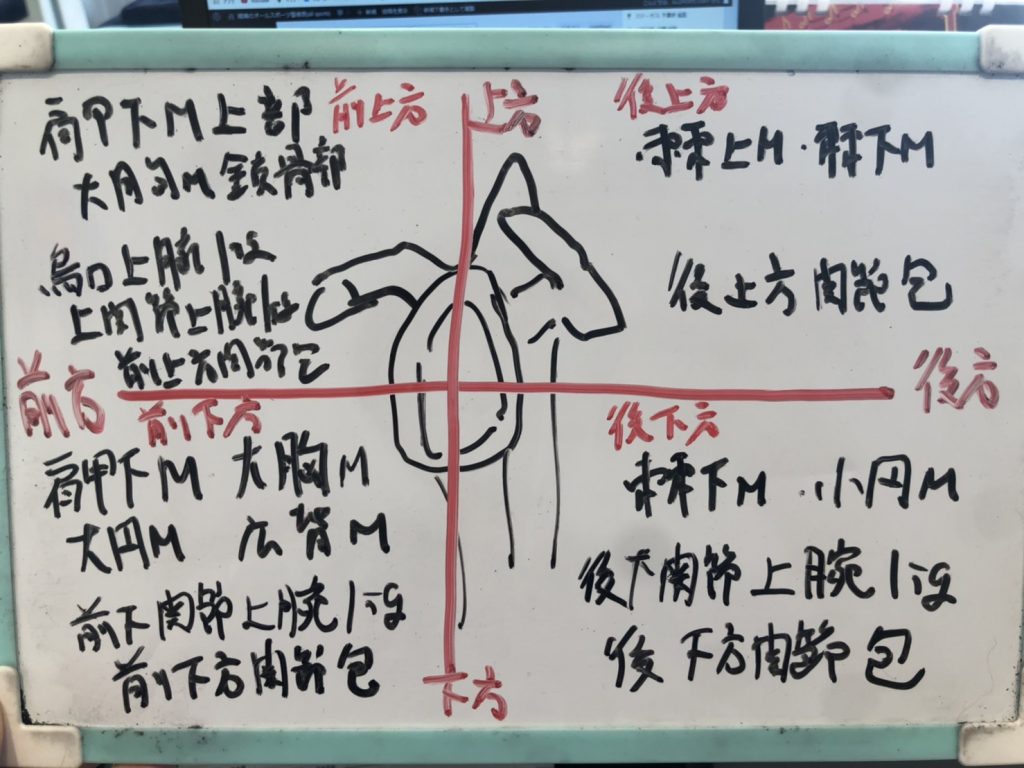 上方
前上方
肩甲下M上部
大胸M鎖骨部
烏口上腕lig
上関節上腕lig
前上方関節包
後上方
棘上M・棘下M
後上方関節包
前方
後方
前下方
肩甲下M 大胸M
大円M 広背M
前下関節上腕lig
前下方関節包
後下方
棘下M・小円M
後下関節上腕lig
後下方関節包
下方